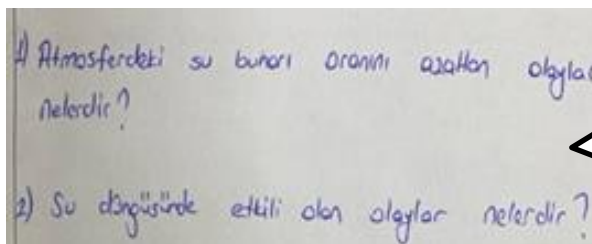 1) Atmosferdeki su buharı oranını azaltan olaylar
nelerdir?
2) Su döngüsünde etkili olan olaylar nelerdir?